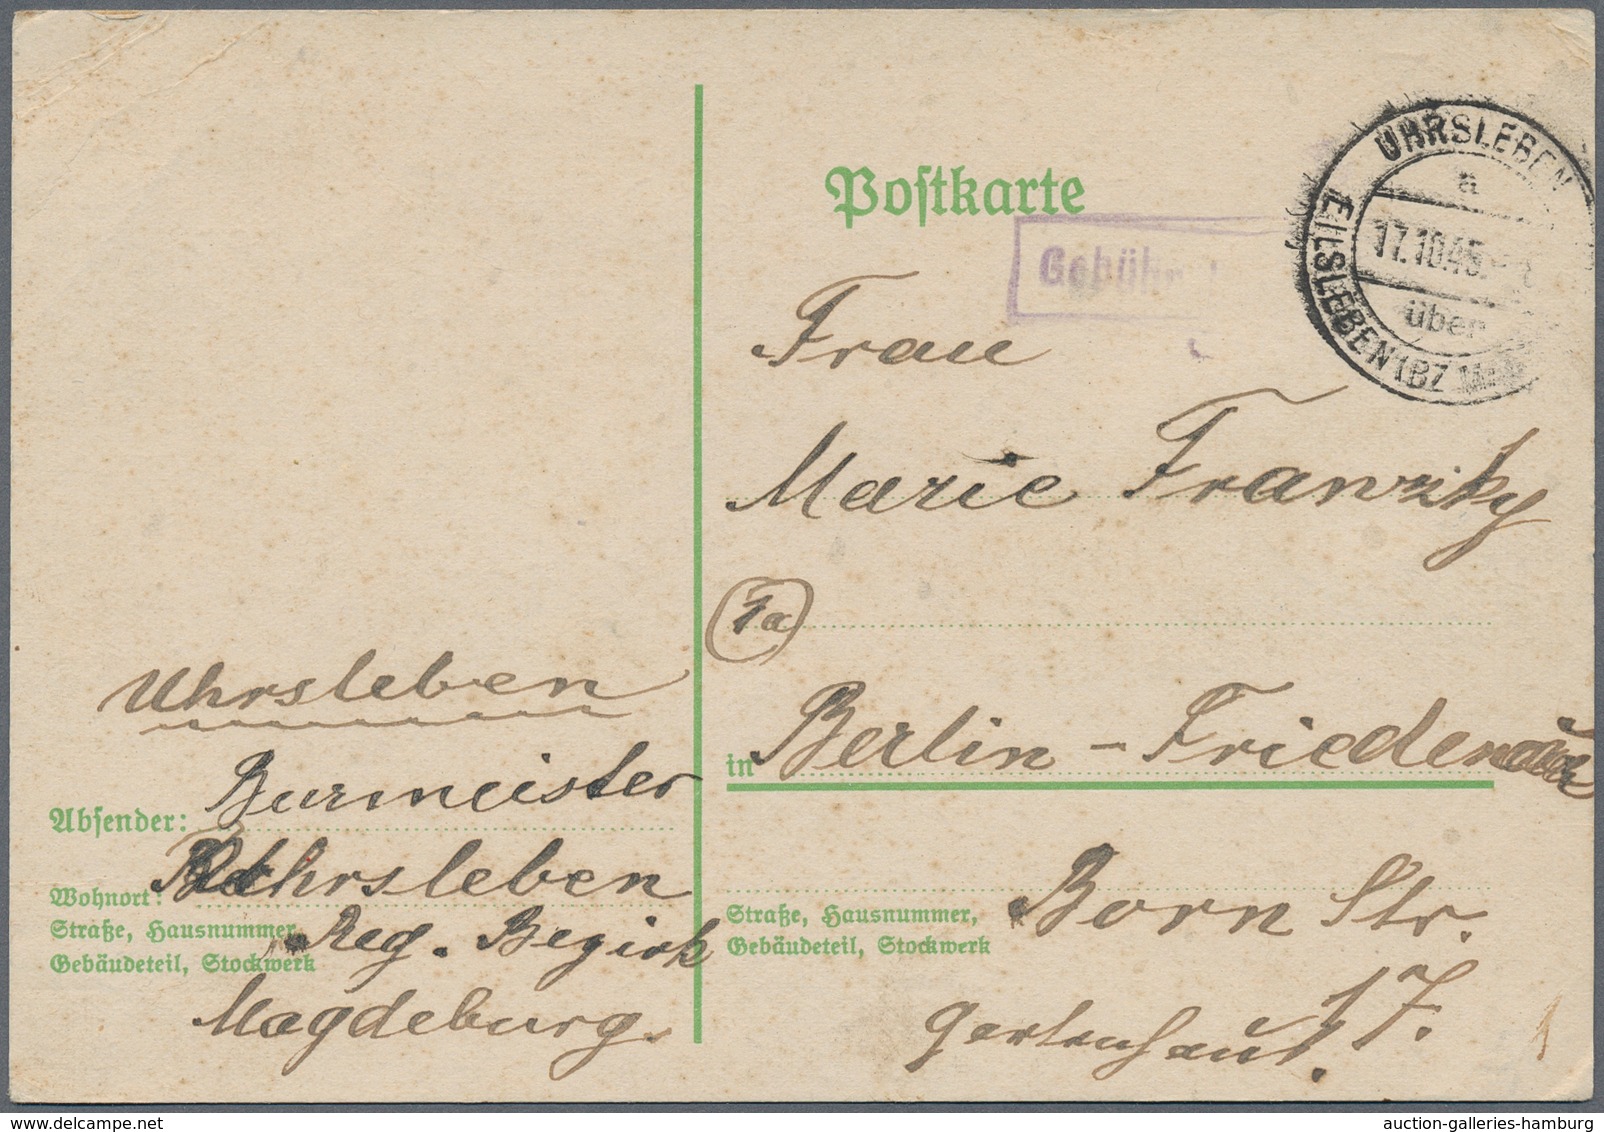 Postkarte
UHRSLEBEN
a
17.10.45
über
EILSLEBEN (BZ
Gebühr
Frau
Marie Franzky
1a
in Berlin-Friedenau
Straße, Hausnummer,
Gebäudeteil, Stockwerk
Born Str.
17.
Gartenhaus.
Uhrsleben
Absender: Burmeister
Wohnort: Uhrsleben
Straße, Hausnummer,
Gebäudeteil, Stockwerk
Reg. Bezirk
Magdeburg.
auction-galleries-hamburg